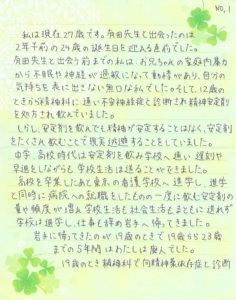 NO,1
私は現在27才です。有田先生と出会ったのは
2年半前の24歳の誕生日を迎える直前でした。
有田先生と出会う前までの私は、お兄ちゃんの家庭内暴力
から不眠や神経が過敏になって動悸があり、自分の
気持ちを表に出さない無口な子でした。そして、12歳の
ときから精神科に通い不安神経症と診断され精神安定剤
を処方され飲んでいました。
しかし、安定剤を飲んでも精神が安定することはなく、安定剤を
たくさん飲むことで現実逃避することをしていました。
中学、高校時代は安定剤を飲み学校へ通い遅刻や
早退をしながらも学校生活は送ることができました。
高校を卒業したあと東京の看護学校へ進学し、進学
と同時に病院への就職をしたものの一度に飲む安定剤の
量や頻度が増え学校生活も社会生活もまともに送れず
学校は退学し、仕事も辞め岩手に帰ってきました。
岩手に帰ってきたのが19歳のときで19歳から23歳
までの5年間はわたしは廃人でした。
19歳のとき精神科で向精神薬依存症と診断